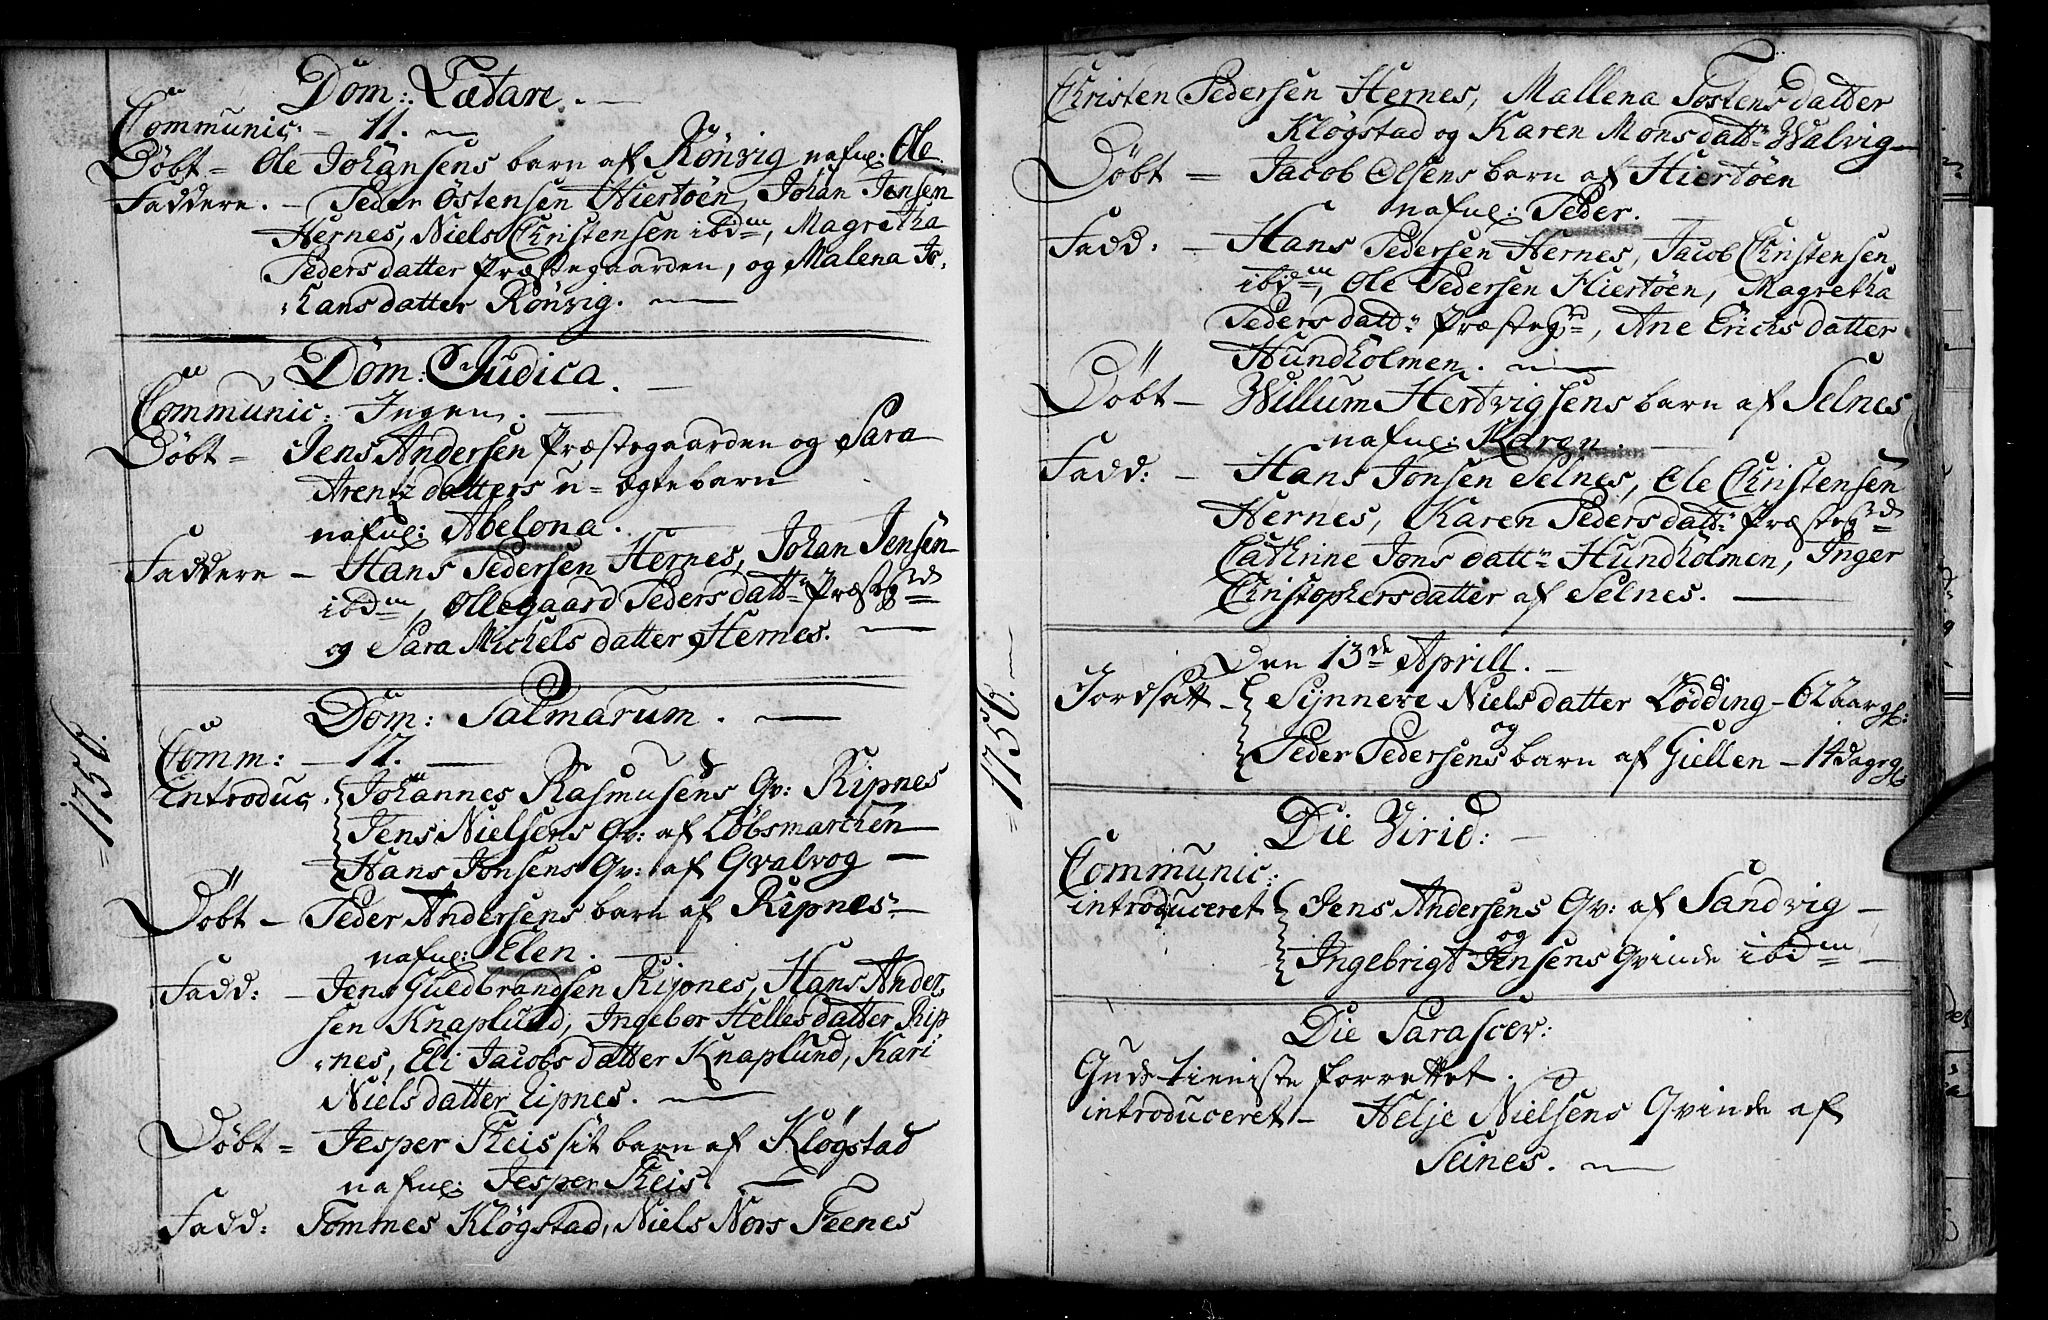 Dom: Lætare.
Communic: - 11.
Döbt = Ole Johansens barn af Rönvig nafnl: Ole.
Faddere. - Peder Östensen Hiertöen, Johan Jensen
Hernes, Niels Christensen ibdm, Magretha
Pedersdatter Præstegaarden, og Malena Jo-
hansdatter Rönvig.
Dom: Judica.
Communic: Ingen.
Döbt = Jens Andersen Præstegaarden og Sara
Arentzdatters u-ægte barn
nafnl: Abelona.
Faddere - Hans Pedersen Hernes, Johan Jensen
ibdm, Ollegaard Pedersdattr Præstegrd
og Sara Michelsdatter Hernes.
Dom: Palmarum.
Comm: - 17.
introduc. Johannes Rasmusens Qv: Ripnes
Jens Nielsens Qv: af Löbsmarchen
Hans Jonsens Qv: af Qvalvog
Döbt - Peder Andersens barn af Ripnes
nafnl: Elen.
Fadd: - Jens Guldbrandsen Ripnes, Hans Ander-
sen Knaplund, Ingebor Hellesdatter Rip-
nes, Eli Jacobsdatter Knaplund, Kari
Nielsdatter Ripnes.
Döbt = Jesper Reis sit barn af Kløgstad
nafnl: Jesper Reis.
Fadd: Tommes Kløgstad, Niels Nors Feenes
1756.
Christen Pedersen Hernes, Mallena Tostensdatter
Kløgstad og Karen Monsdattr Walvig
Döbt = Jacob Olsens barn af Hiertöen
nafnl: Peder.
Fadd: - Hans Pedersen Hernes, Jacob Christensen
ibdm, Ole Pedersen Hiertöen, Magretha
Pedersdattr Præstegrd, Ane Erichsdatter
Hundholmen.
Döbt - Willum Hertvigsens barn af Selnes
nafnl: Karen.
Fadd: - Hans Jonsen Selnes, Ole Christensen
Hernes, Karen Pedersdattr Præstegrd
Cathrine Jonsdattr Hundholmen, Inger
Christophersdatter af Selnes.
Den 13de Aprill.
Jordsatt - Synnere Nielsdatter Lödding - 62 aar gl:
og
Peder Pedersens barn af Giellen - 14 dagr gl:
Die Virid:
Communic:
introduceret Jens Andersens Qv: af Sandvig
og
Ingebrigt Jensens Qvinde ibdm
Die Parascev:
Guds tieniste forrettet.
introduceret - Helje Nielsens Qvinde af
Seines.
1756.